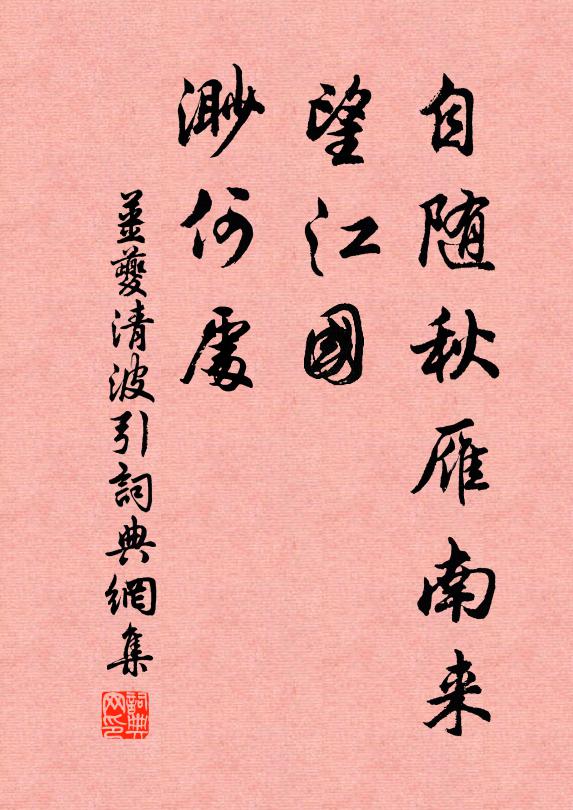 自随秋雁南来
望江國
渺何處
姜夔清波引詞典網集
詞典
网印